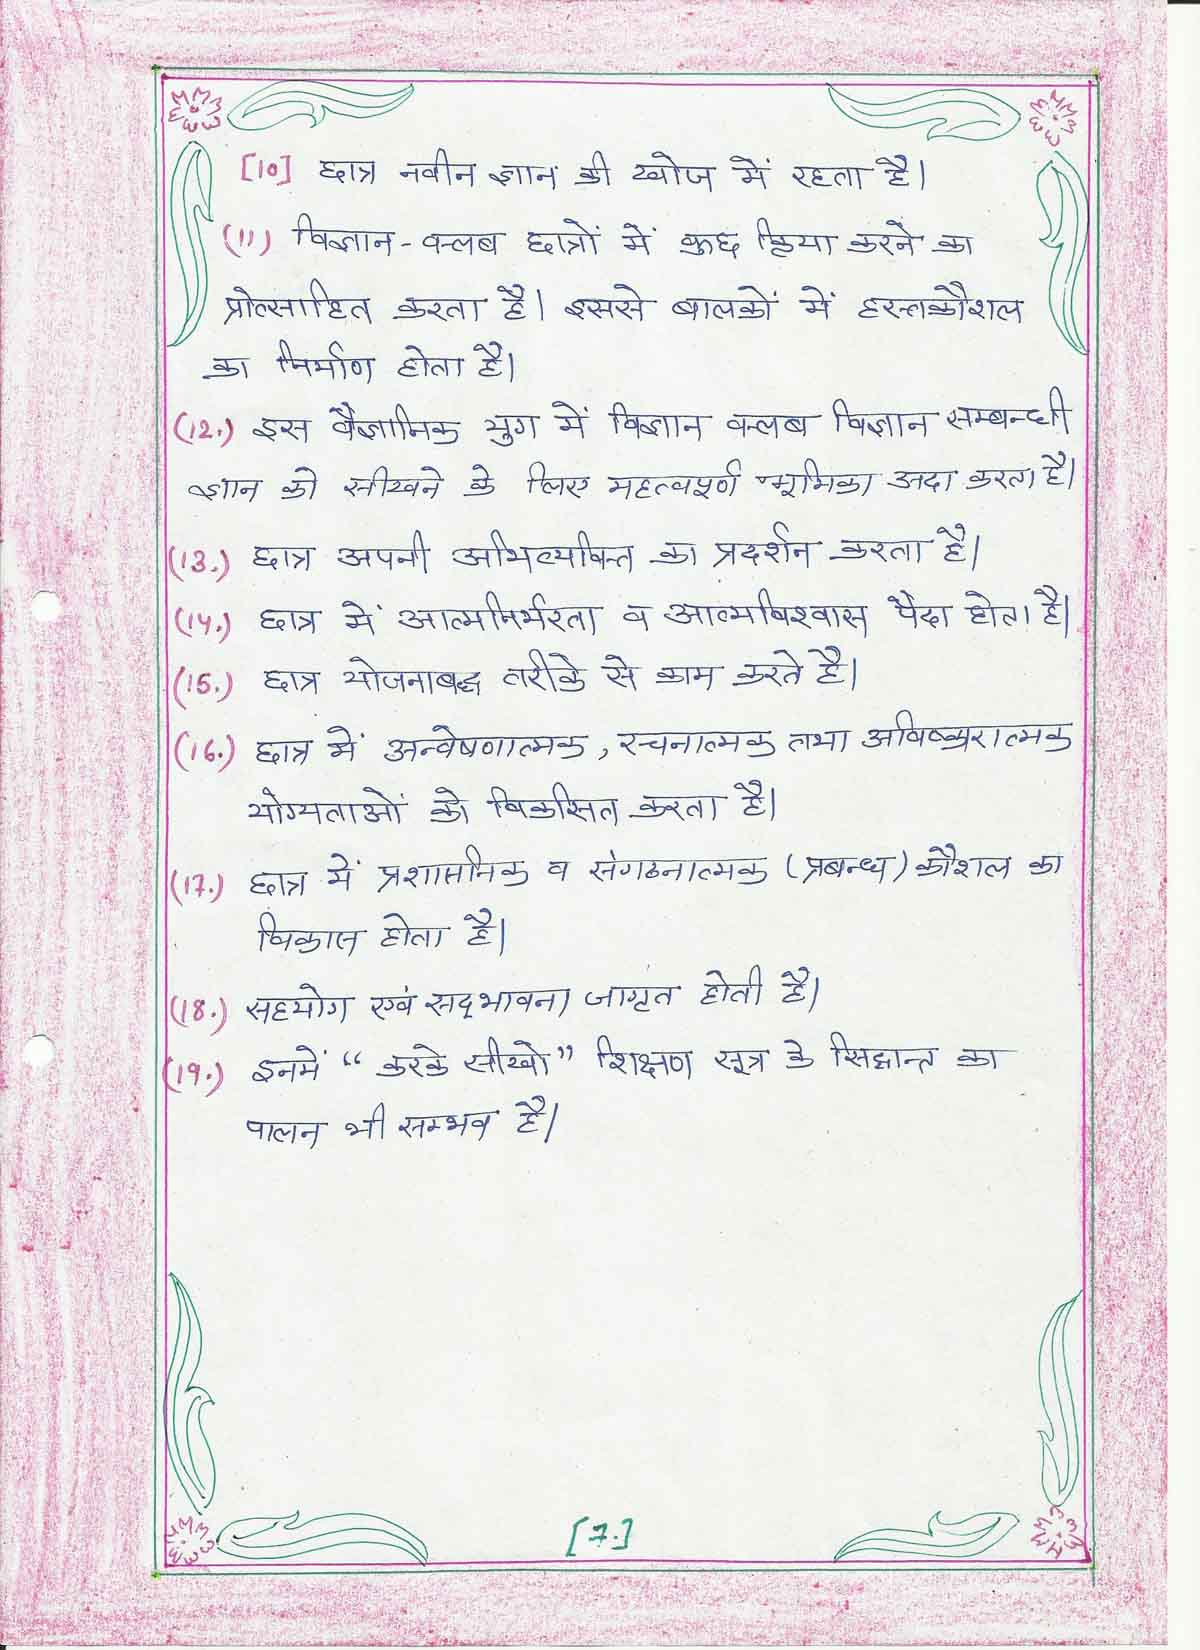 [10] छात्र नवीन ज्ञान की खोज में रहता है।
(11) विज्ञान-क्लब छात्रों में कुछ क्रिया करने का
प्रोत्साहित करता है। इससे बालकों में हस्तकौशल
का निर्माण होता है।
(12.) इस वैज्ञानिक युग में विज्ञान क्लब विज्ञान सम्बन्धी
ज्ञान को सीखने के लिए महत्वपूर्ण भूमिका अदा करता है।
(13.) छात्र अपनी अभिव्यक्ति का प्रदर्शन करता है।
(14.) छात्र में आत्मनिर्भरता व आत्मविश्वास पैदा होता है।
(15.) छात्र योजनाबद्ध तरीके से काम करते है।
(16.) छात्र में अन्वेषणात्मक, रचनात्मक तथा अविष्कारात्मक
योग्यताओं को विकसित करता है।
(17.) छात्र में प्रशासनिक व संगठनात्मक (प्रबन्ध) कौशल का
विकास होता है।
(18.) सहयोग एवं सद्भावना जागृत होती है।
(19.) इनमें “ करके सीखो” शिक्षण सूत्र के सिद्धान्त का
पालन भी सम्भव है।
[7.]